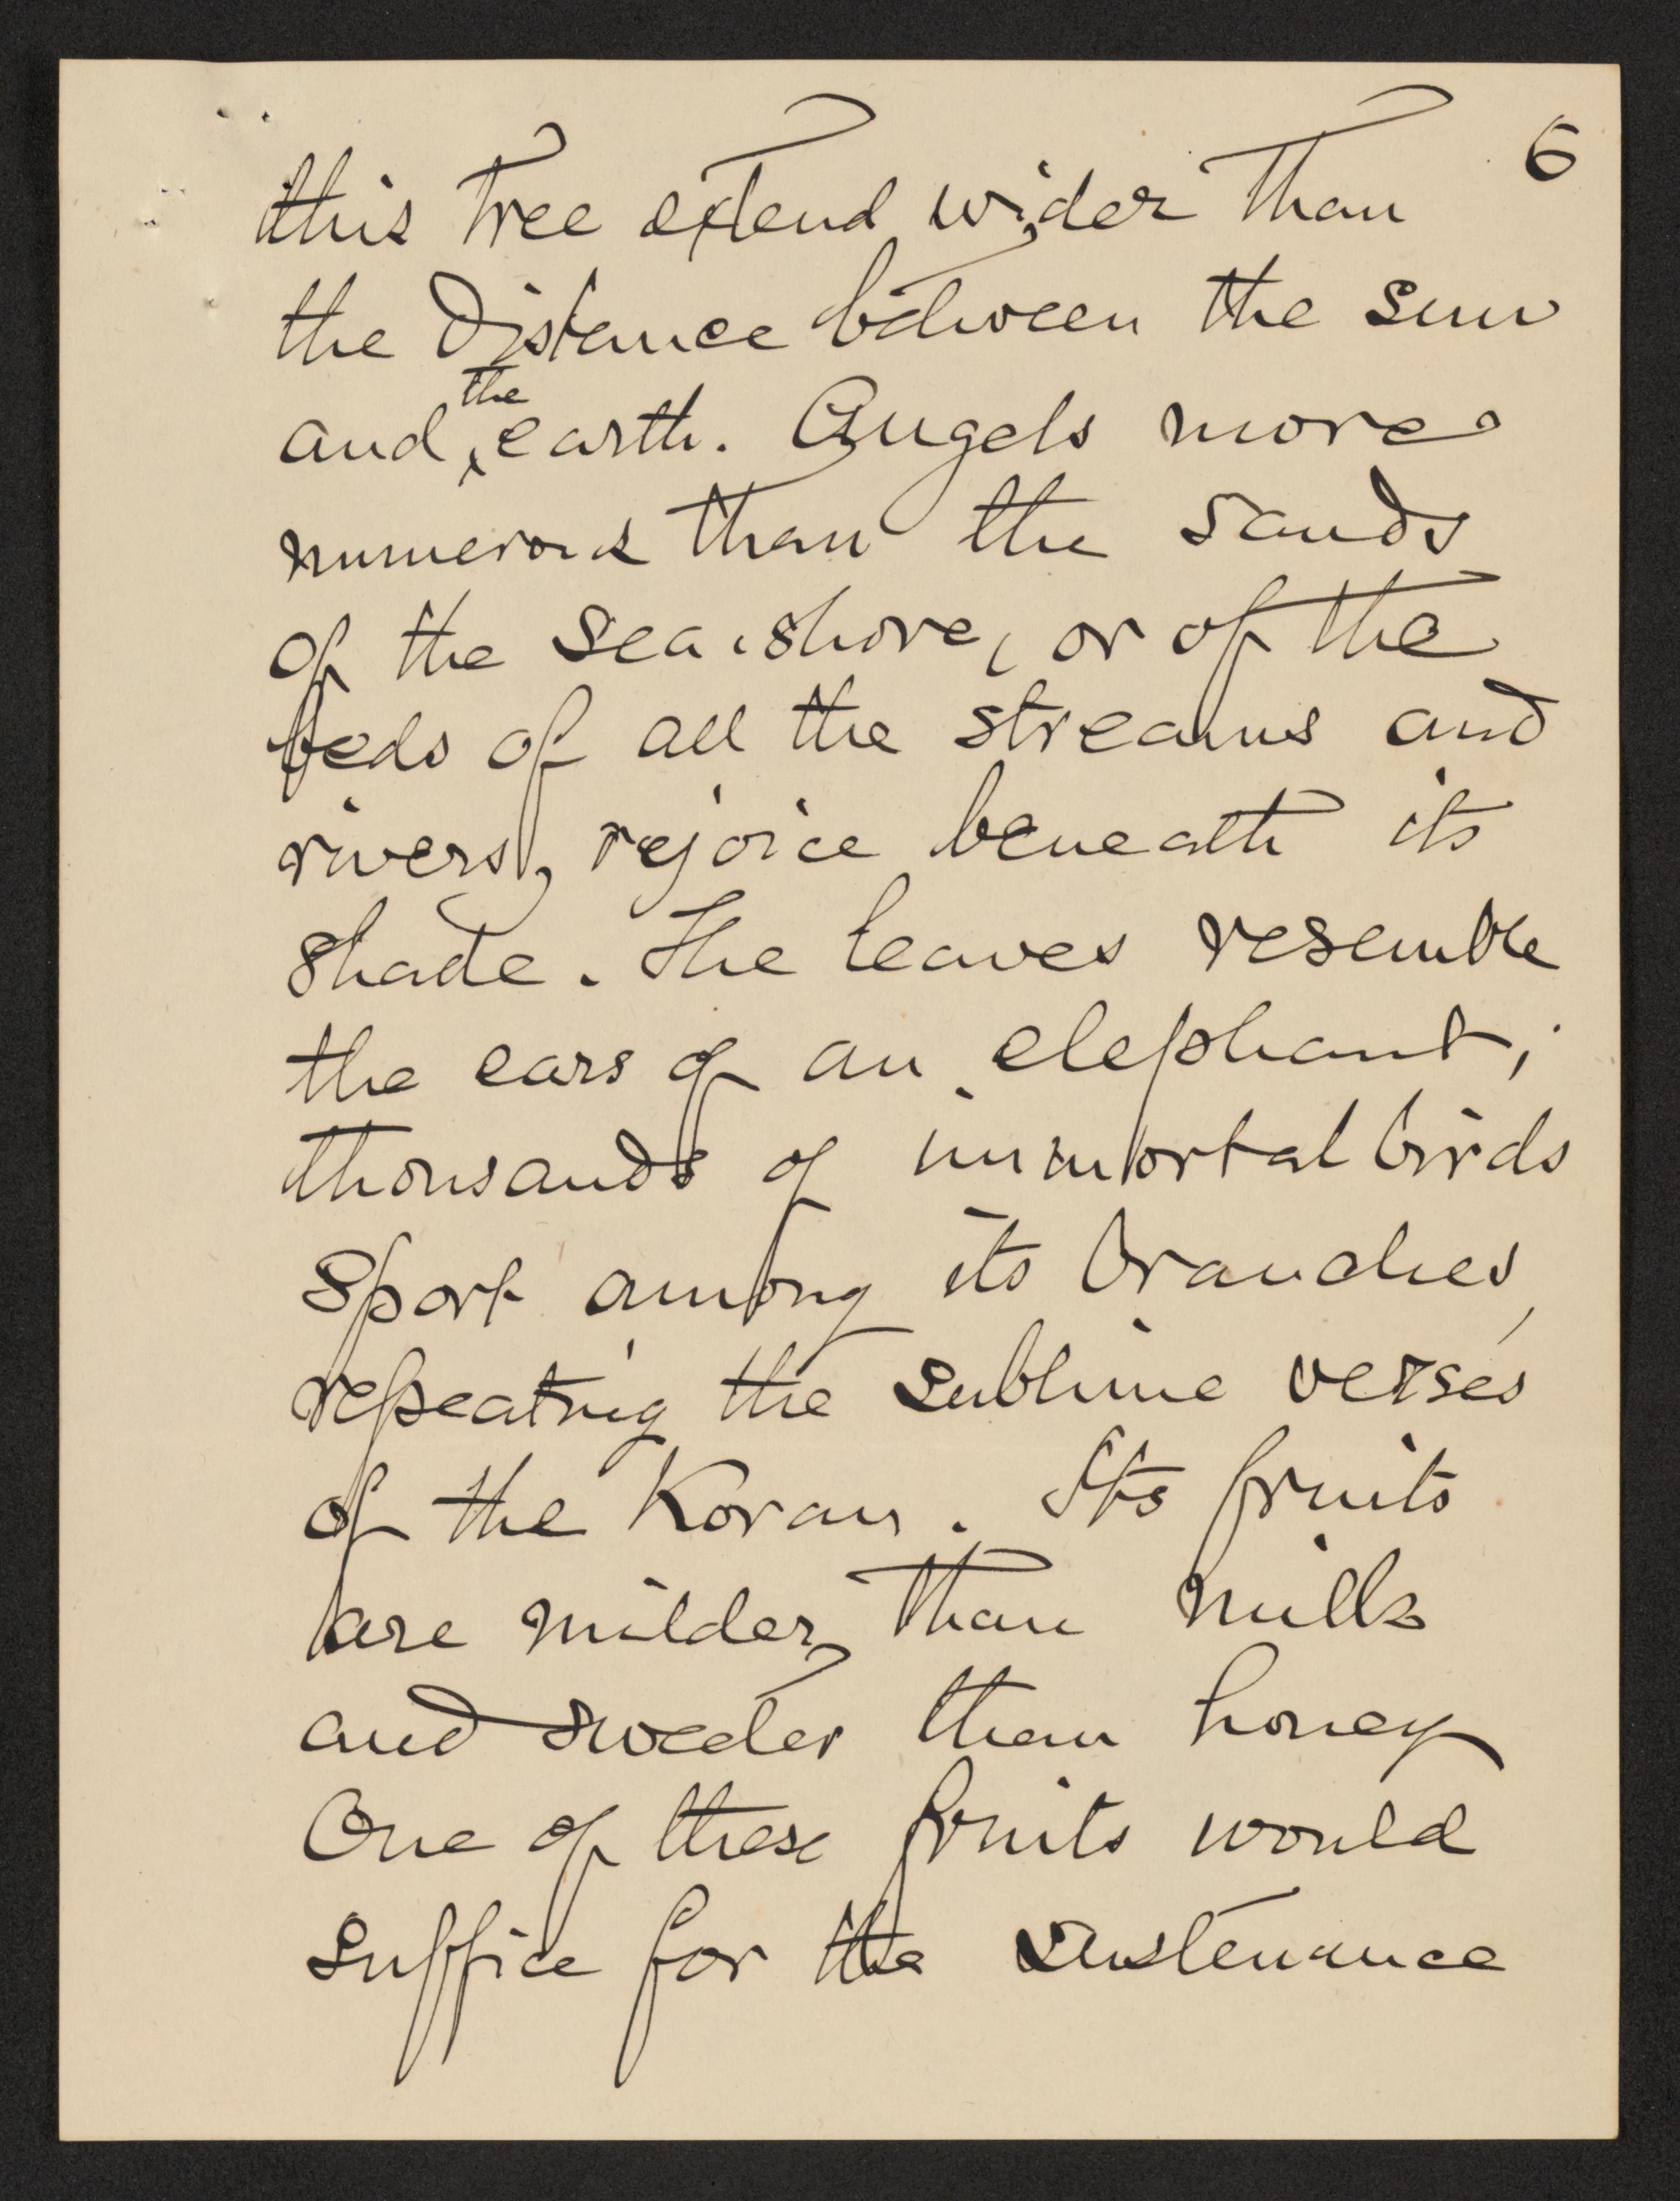 6
this tree extend wider than
the distance between the sun
and the earth. Angels more
numerous than the sands
of the sea-shore, or of the
beds of all the streams and
rivers, rejoice beneath its
shade. The leaves resemble
the ears of an elephant;
thousands of immortal birds
sport among its branches,
repeating the sublime verses
of the Koran. Its fruits
are milder than milk
and sweeter than honey
One of these fruits would
suffice for the sustenance